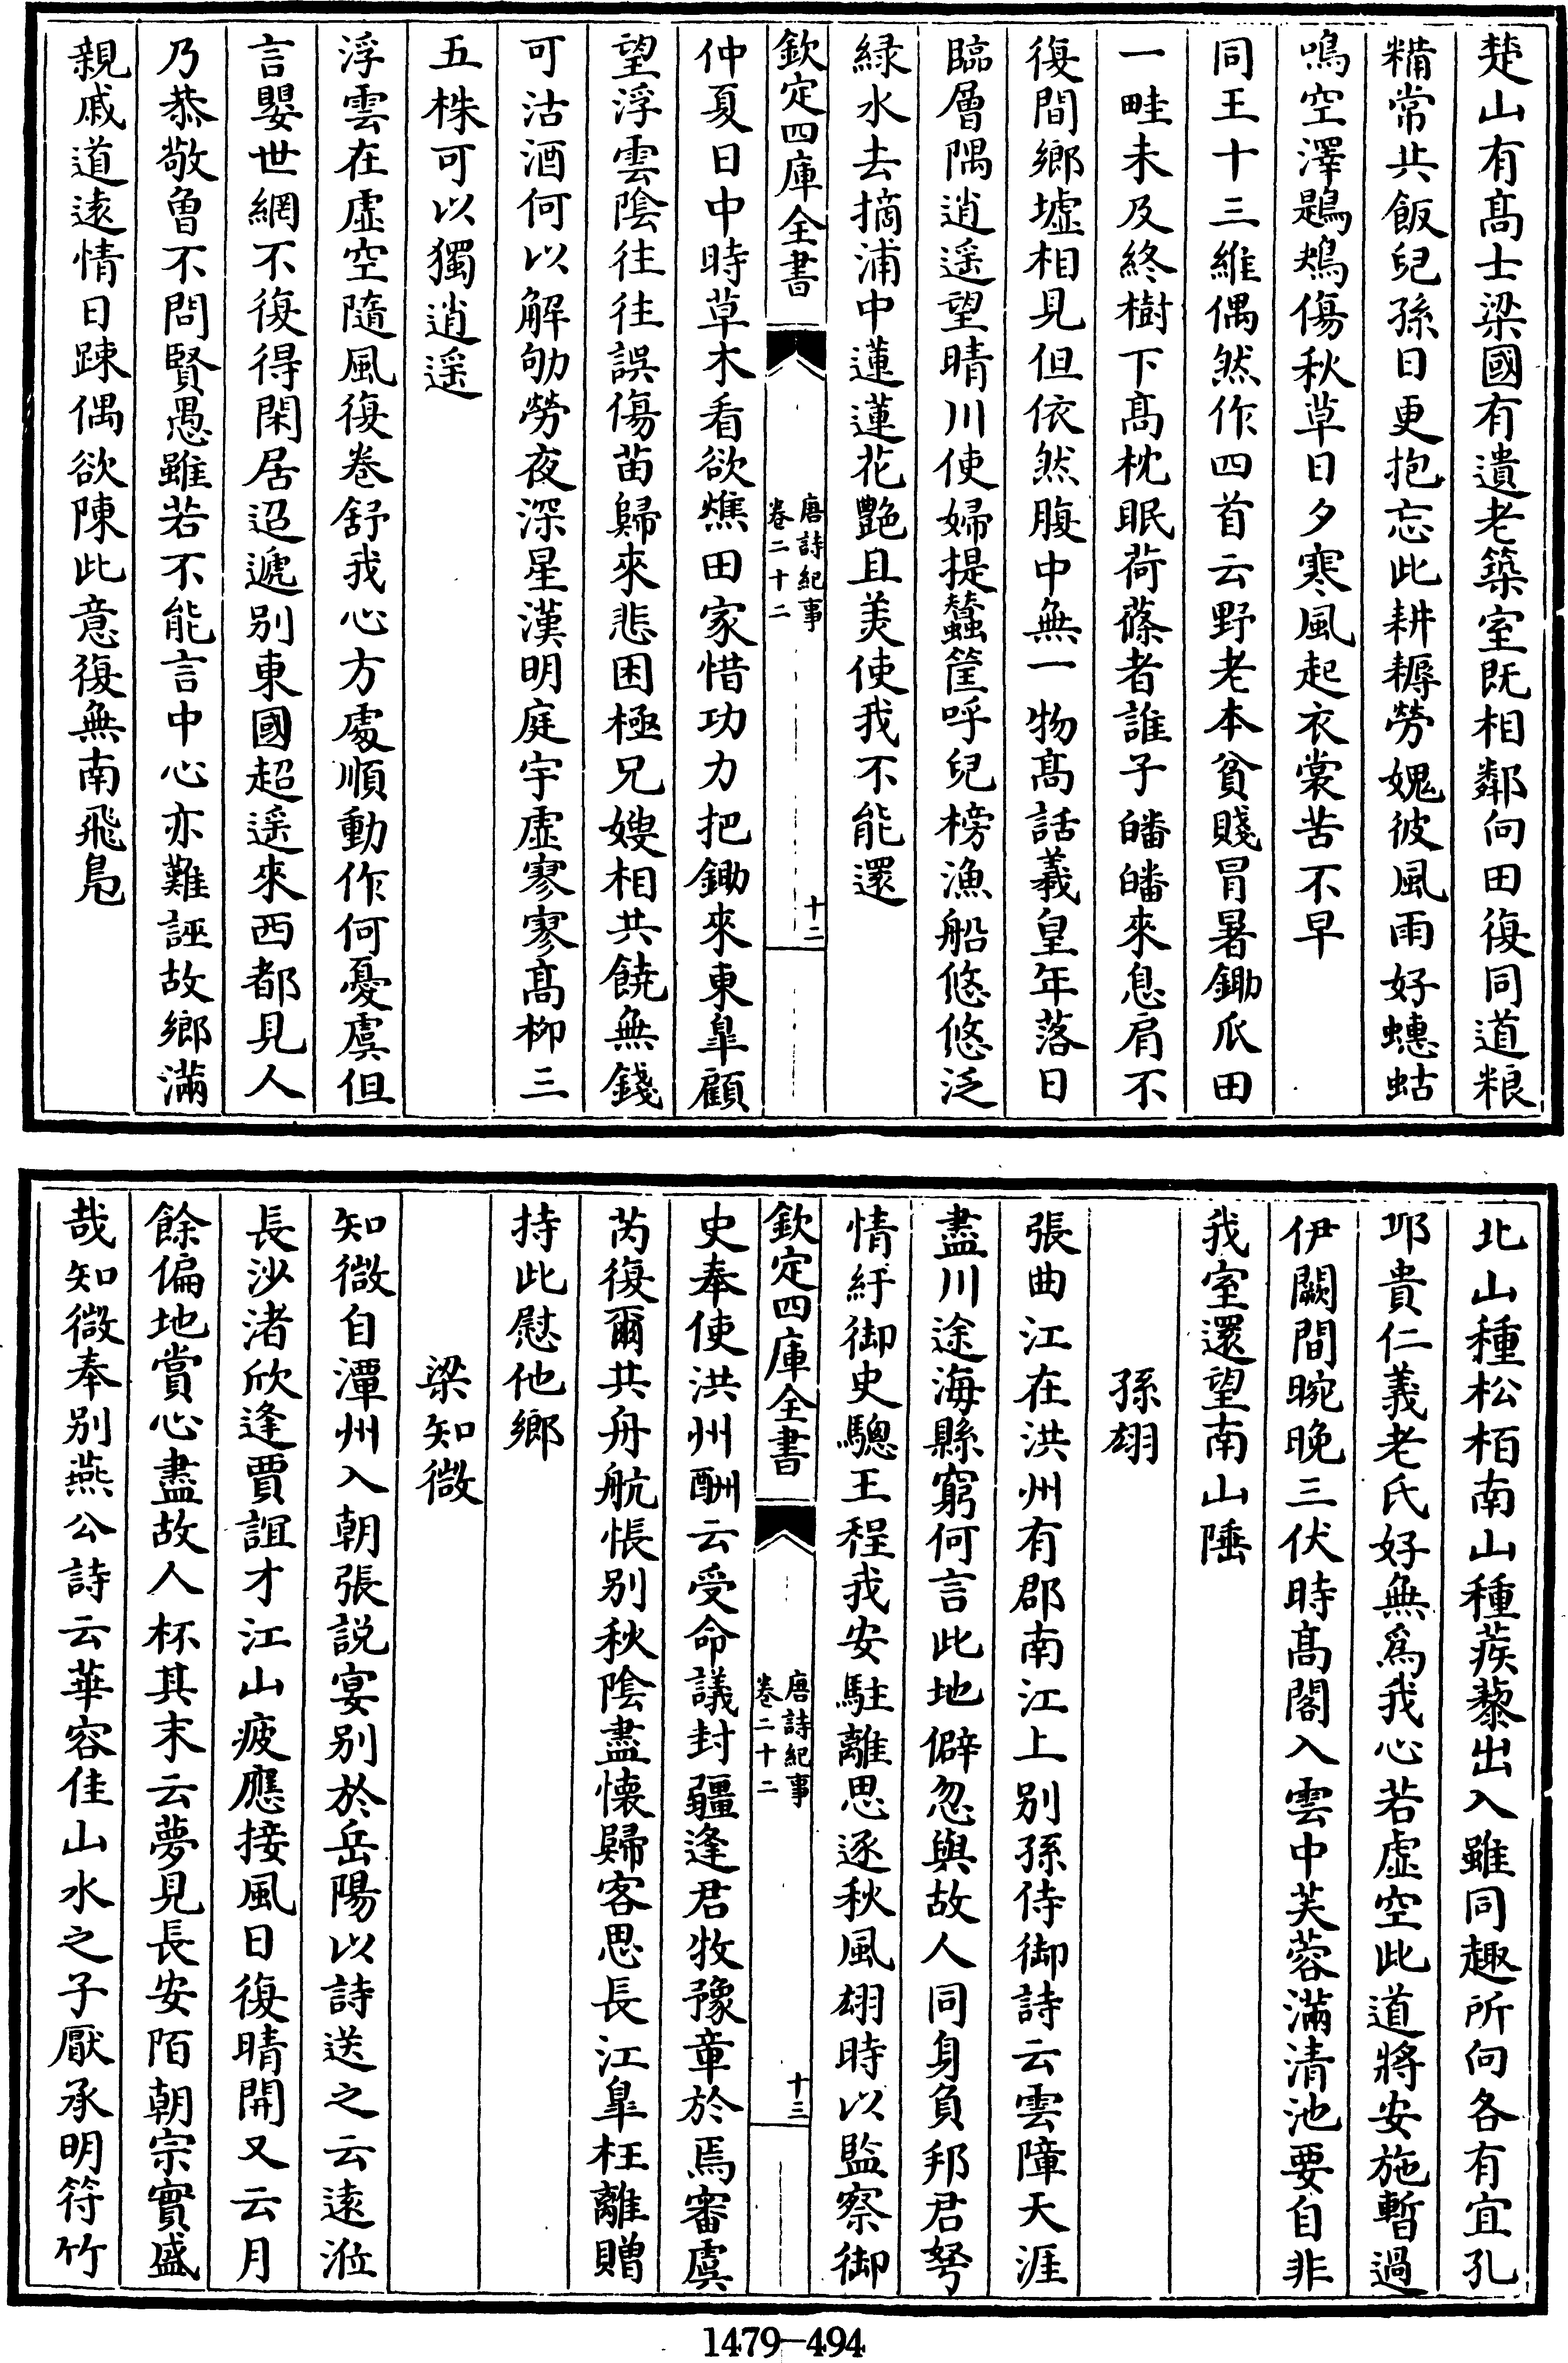 楚山有髙士梁國有遺老築室既相鄰向田復同道粮
糒常共飯兒孫日更抱忘此耕耨勞媿彼風雨好蟪蛄
鳴空澤鶗鴂傷秋草日夕寒風起衣裳苦不早
同王十三維偶然作四首云野老本貧賤冒暑鋤爪田
一畦未及終樹下髙枕眠荷蓧者誰子皤皤來息肩不
復問鄉墟相見但依然腹中無一物髙話羲皇年落日
臨層隅逍遥望晴川使婦提蠶筐呼兒榜漁船悠悠泛
緑水去摘浦中蓮蓮花艷且羙使我不能還
欽定四庫全書
唐詩紀事
卷二十二
十二
仲夏日中時草木看欲燋田家惜功力把鋤來東臯顧
望浮雲陰往往誤傷苗歸來悲困極兄嫂相共饒無錢
可沽酒何以解劬勞夜深星漢明庭宇虛寥寥髙栁三
五株可以獨逍遥
浮雲在虛空隨風復卷舒我心方處順動作何憂虞但
言嬰世網不復得閑居迢遞别東國超遥來西都見人
乃恭敬曾不問賢愚雖若不能言中心亦難誣故鄉滿
親戚道逺情日踈偶欲陳此意復無南飛鳬
北山種松栢南山種蒺藜出入雖同趣所向各有宜孔
邱貴仁義老氏好無為我心若虛空此道將安施暫過
伊闕間晼晚三伏時髙閣入雲中芙蓉滿清池要自非
我室還望南山陲
孫翃
張曲江在洪州有郡南江上别孫侍御詩云雲障天涯
盡川途海縣窮何言此地僻忽與故人同身負邦君弩
情紆御史驄王程我安駐離思逐秋風翃時以監察御
欽定四庫全書
唐詩紀事
卷二十二
十三
史奉使洪州酬云受命議封疆逢君牧豫章於焉審虞
芮復爾共舟航悵别秋陰盡懐歸客思長江臯枉離贈
持此慰他鄉
梁知微
知微自潭州入朝張説宴别於岳陽以詩送之云逺涖
長沙渚欣逢賈誼才江山疲應接風日復晴開又云月
餘偏地賞心盡故人杯其末云夢見長安陌朝宗實盛
哉知微奉别燕公詩云華容佳山水之子厭承明符竹
1479-494